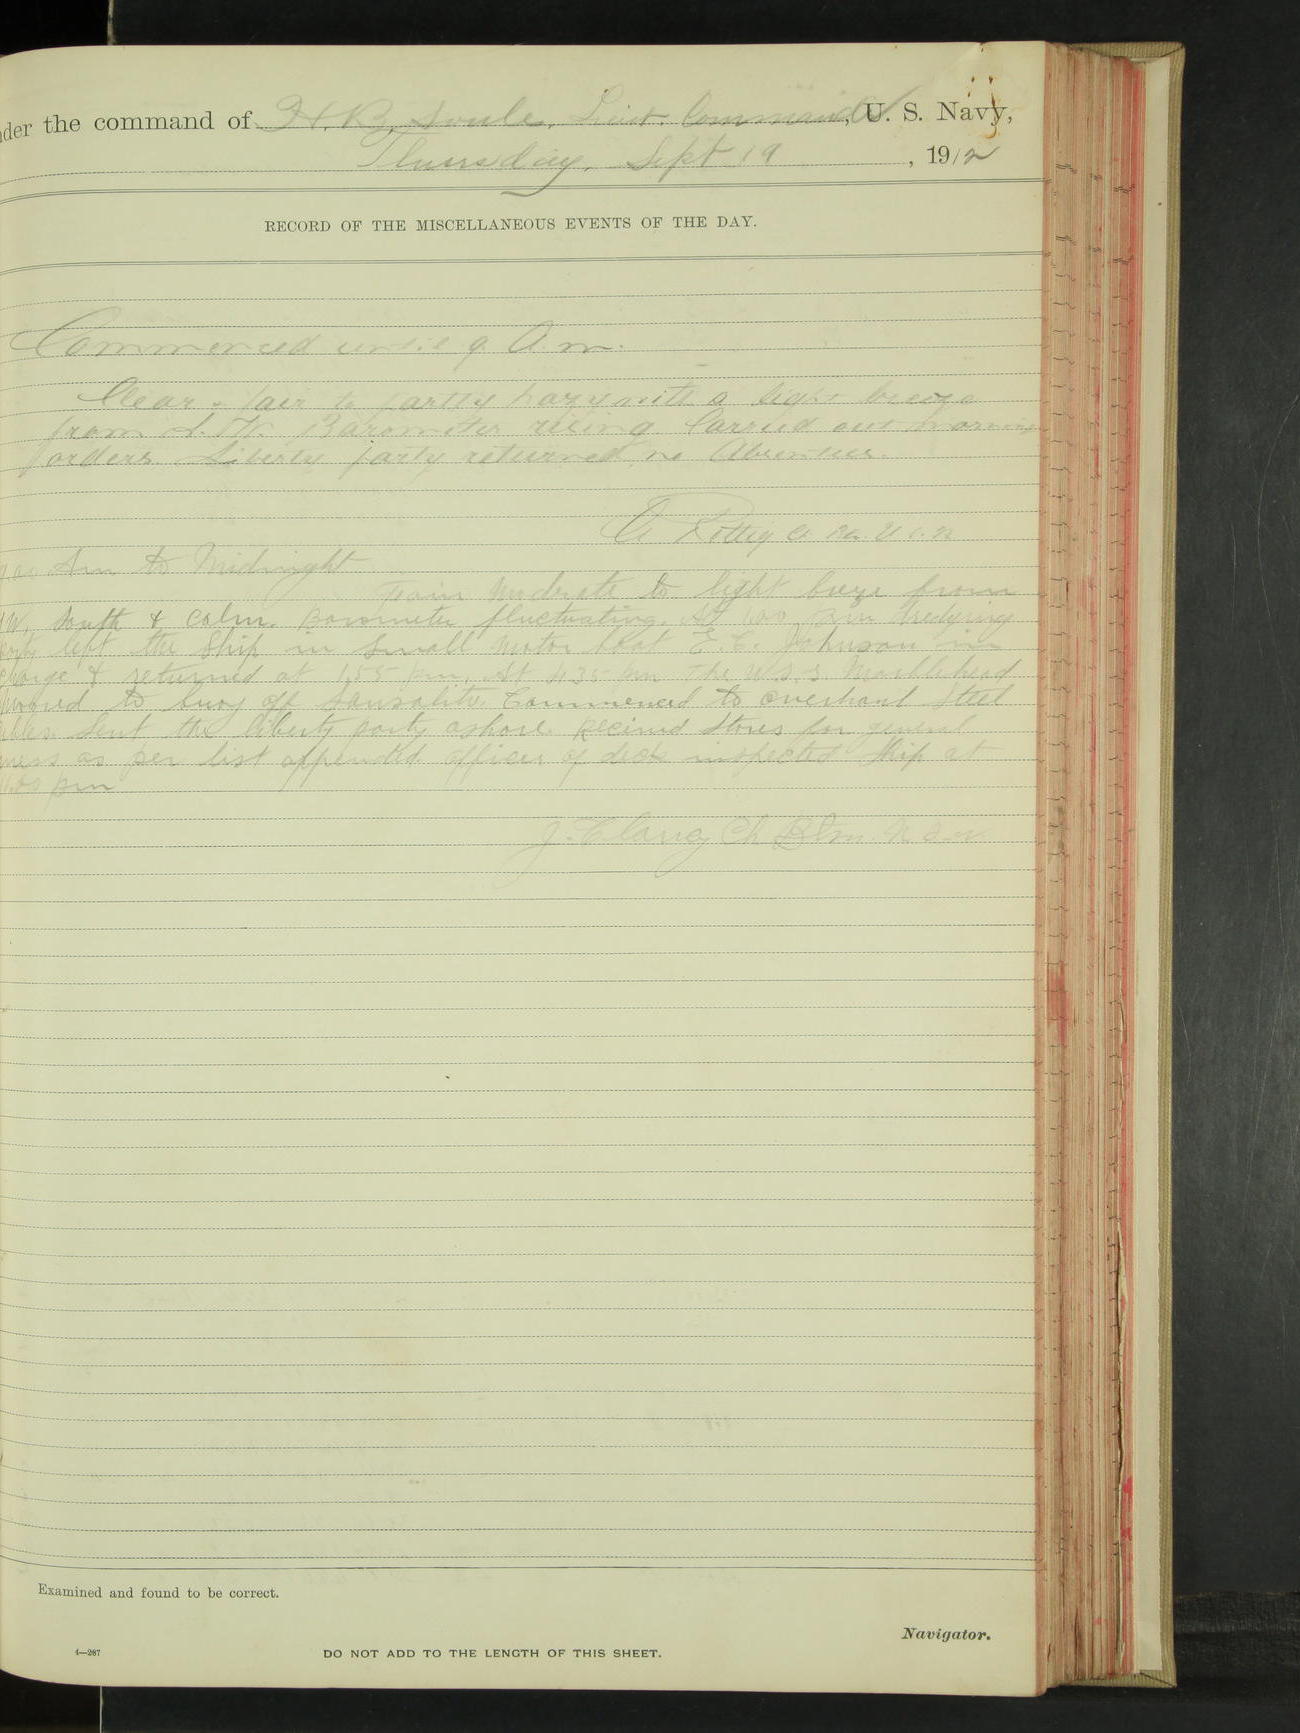 nder the command of H. B. Soule, Lieut. Commander, U. S. Navy,
Thursday, Sept 19, 1912
RECORD OF THE MISCELLANEOUS EVENTS OF THE DAY.
Commenced until 9 A.m.
Clear - fair to partly hazy with a light breeze
from Barometer rising Carried out morning
orders. Liberty party returned no Absentees.
U.S.N
Am to Midnight
Fair Moderate to light breze from
W. South & Calm. Barometer fluctuating. At 1.00 Pm dredging
party left the Ship in Small Motor boat E. C. Johnson in
charge & returned at 1.55 pm. At 4.35 pm The U.S.S. Marblehead
moved to buoy off Sausalito. Commenced to overhaul Steel
cables. Sent the liberty party ashore. Recieved Stores for general
mess as per list appended. Officer of deck inspected Ship at
pm
J. Clancy Ch Btsn U.S.N.
Examined and found to be correct.
Navigator.
4—267
DO NOT ADD TO THE LENGTH OF THIS SHEET.